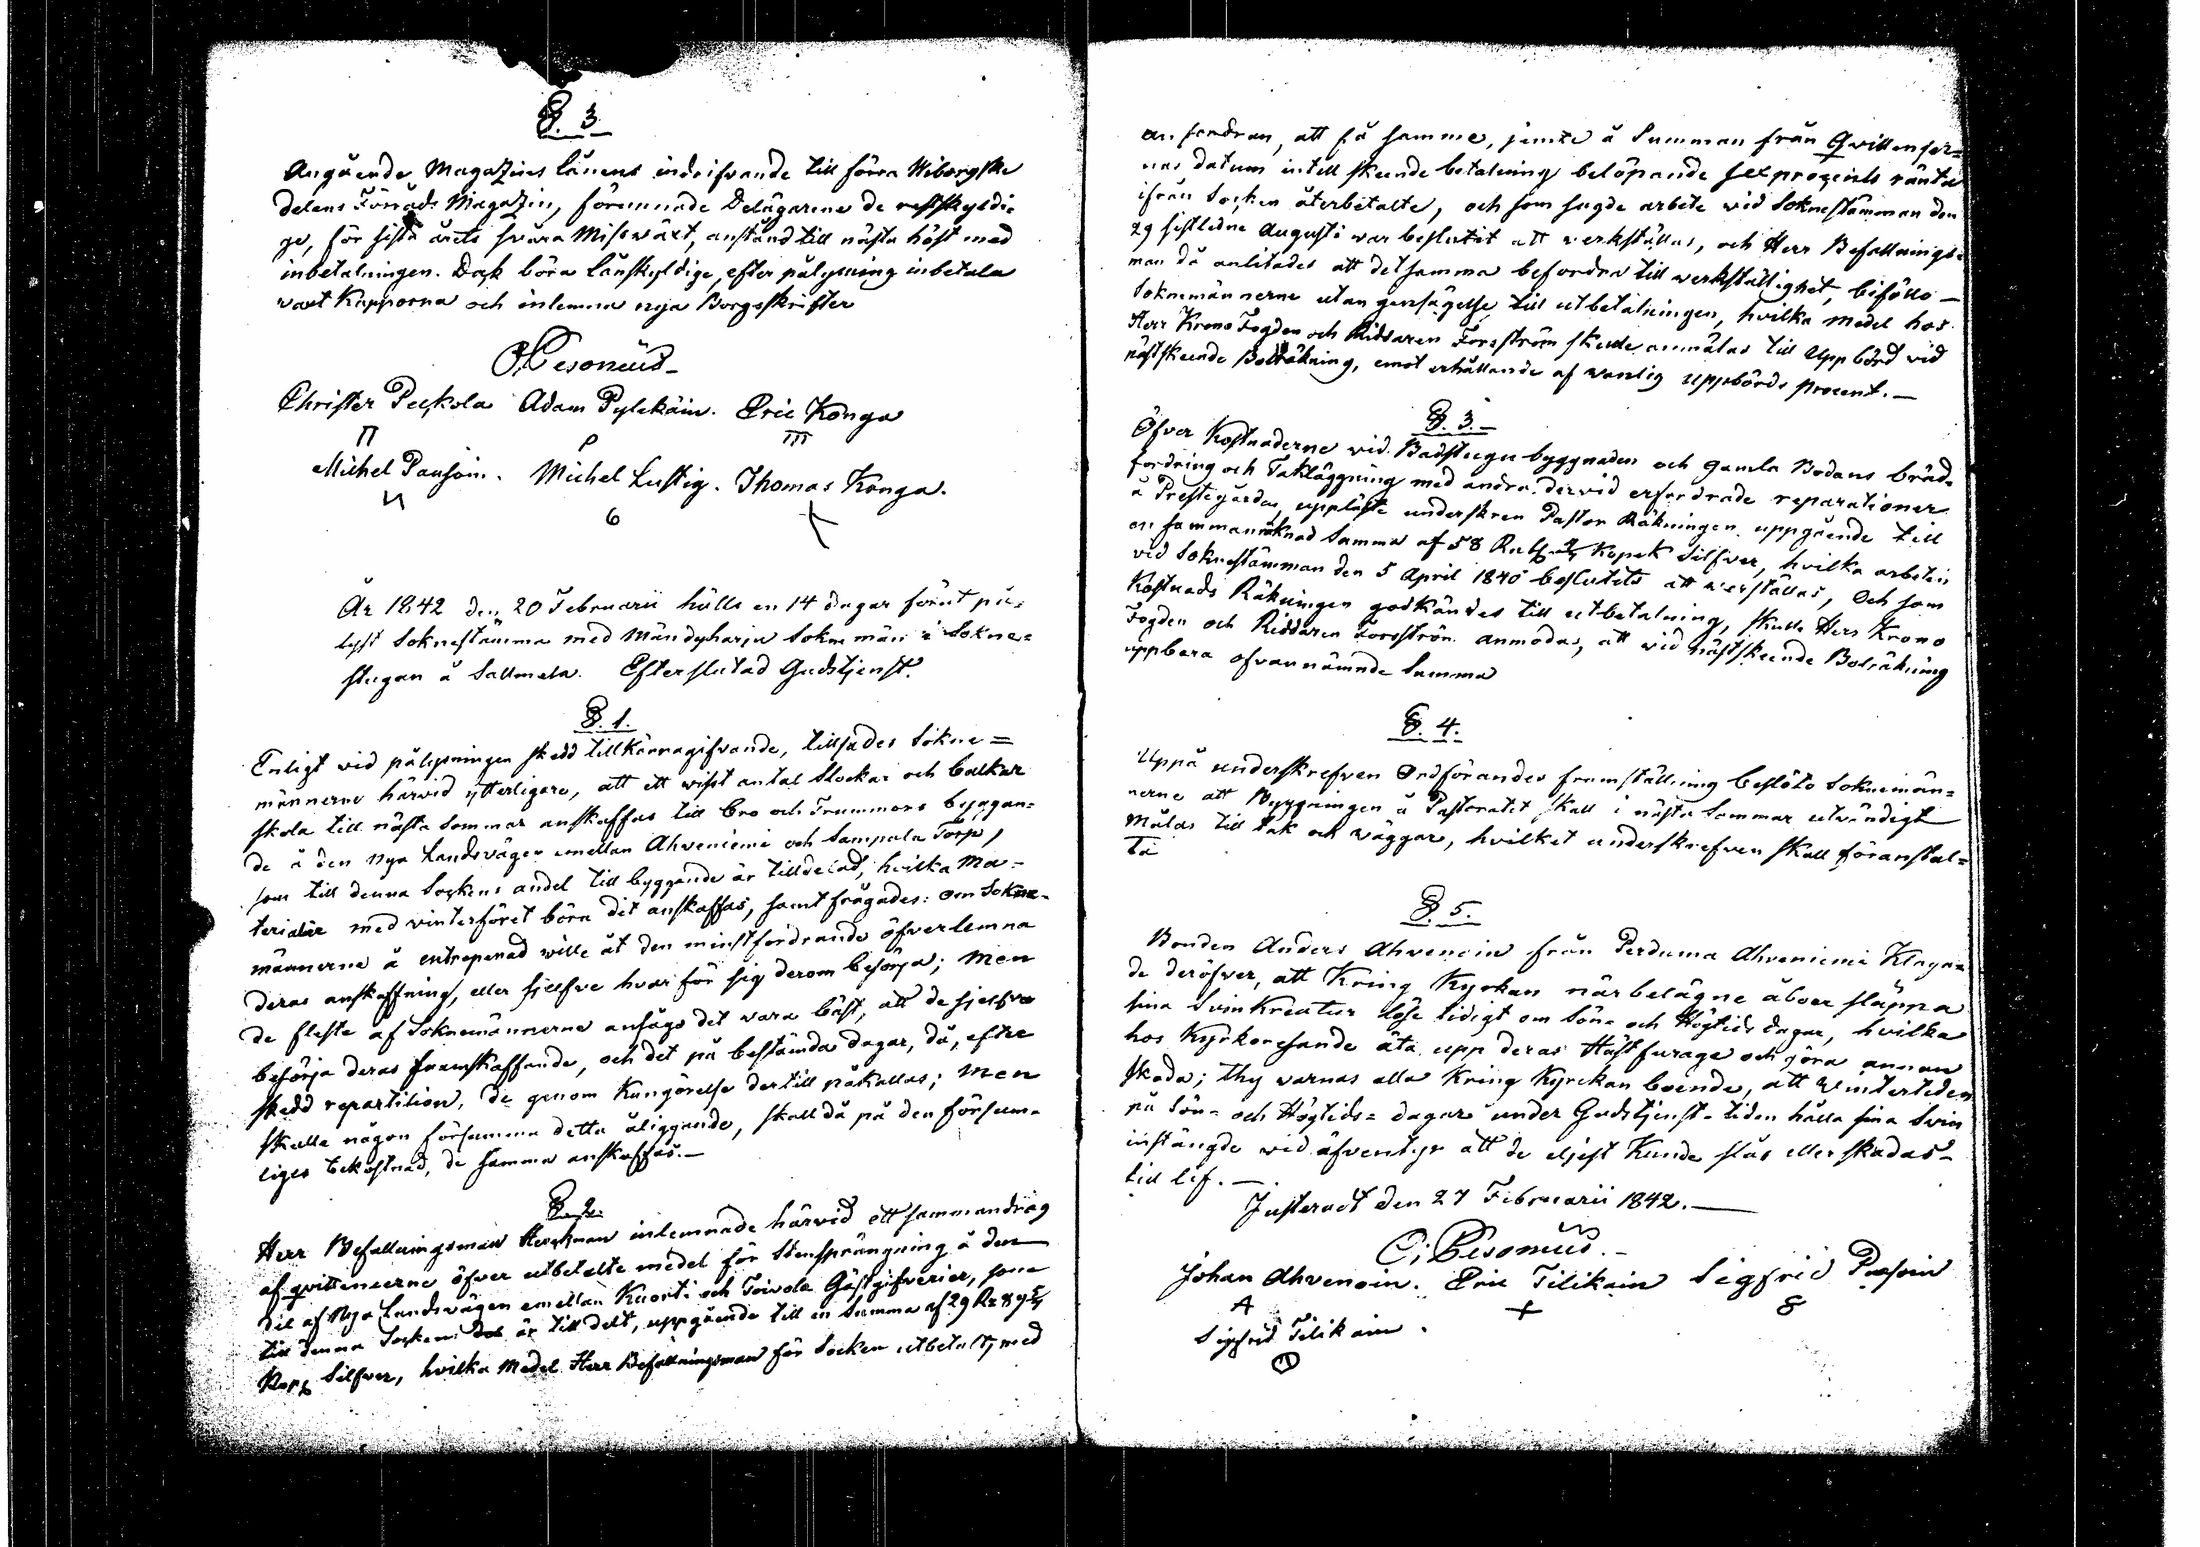 §. 3
Angående Magazins lånens indrifvande till förra Wiborgske
delens Förråds Magazin, förunnade Delägarne de restskyldi-
ge, för sista årets svåra Missväxt, anstånd till nästa höst med
inbetalningen. Dock böra lånskyldige, efter pålysning inbetala
vaxt Kapporna och inlemna nya Borgeskrifter
Christer Peckola Adam Pylkäin. Eric Konga
Michel Pausoin. Michel Lustig. Thomas Konga.
6
År 1842 den 20 Februarii hölls en 14 dagar förut på-
lyst Soknestämma med Mändyharju Sokne män i Sokne-
stugan å Sallmela. Efter slutad Gudstjenst.
§. 1.
Enligt vid pålysningen skedd tillkännagifvande, tillsades Sokne=
männerne härvid ytterligare, att ett visst antal Stockar och balkar
skola till nästa Sommar anskaffas till bro och Trummors byggan-
de å den nya Landsvägen emellan Ahveniemi och Sampala Torp,
som till denna Sockens andel till byggande är tilldelad, hvilka Ma-
terialier med vinterföret böra dit anskaffas, samt frågades: om Sokne-
männerne å entrepenad wille åt den minstfordrande öfverlemna
deras anskaffning, eller sjelfve hvar för sig derom besörja; Men
de fleste af Soknemännerne ansågo det vara bäst, att de sjelfva
besörja deras framskaffande, och det på bestämda dagar, då, efter
skedd repartition, de genom Kungörelse dertill påkallas; Men
skulle någon försumma detta åliggande, skall då på den försum-
liges bekostnad, de samma anskaffas.—
§. 2.
Herr Befallningsman inlemnade härvid ett sammandrag
af qvittencerne öfver utbetalte medel för Stensprängning å den
del af Nya Landsvägen emellan Kuorti och Toivola Gästgifverier, som
till denna Socken är till delt, uppgående till en Summa af 29 Rr 89 5/7
Kop Silfver, hvilka Medel Herr Befallningsman för Socken utbetalt, med
an fordran, att få samme, jemte å Summan från Qvittenser=
nas datum intill skeende betalning belöpande sex procents ränta
ifrån Socken återbetalte, och som sagde arbete vid Soknestämman den
29 sistledne Augusti war beslutit att verkställas, och Herr Befallnings-
man då anlitades att detsamma befordra till werkställighet, biföllo —
Soknemännerne utan gensägelse till utbetalningen, hvilka medel hos
Herr Krono Fogden och Riddaren Forsström skulle anmälas till Uppbörd vid
nästskeende Bolräkning, emot erhållande af vanlig uppbörds procent.—
§. 3.—
Öfver Kostnaderne vid Badstugu byggnaden och gamla Bodans bräd-
fordring och Takläggning med andra dervid erfordrade reparationer
å Prestegården, uppläste underskren Pastor Räkningen uppgående till
en sammanräknad Summa af 58 Rub Kopek Silfver, hvilka arbeten
vid Soknestämman den 5 April 1840 beslutits att werställas, Och som
Kostnads Räkningen godkändes till utbetalning, skulle Herr Krono
Fogden och Riddaren Forsström anmodas, att vid nästskeende Bolräkning
uppbära ofvannämnde Summa
§. 4.
Uppå underskrefven Ordförandes framställning beslöto Soknemän-
nerne att Byggningen å Pastoratet skall i nästa Sommar utvändigt
Målas till tak och väggar, hvilket underskrefven skall föranstal=
ta
§. 5.
Bonden Anders Ahvenain från Perduma Ahveniemi Klaga=
de deröfver, att Kring Kyrkan när belägne åboer släppa
sina Svinkreatur löse tidigt om Sön- och Högtids dagar, hvilka
hos Kyrkoresande äta upp deras Hästfurage och göra annan
skada; thy varnas alla Kring Kyrckan boende, att Wintertiden
på Sön- och Högtids= dagar under Gudstjenst- tiden hålla sina Svin
instängde vid äfventyr att de eljest Kunde slås eller skadas-
till lif.—
Justeradt den 27 Februarii 1842.—
Johan Ahvenain. Eric Tilikain Sigfrid Pasoin
A + 8
Sigfrid Tilikain.